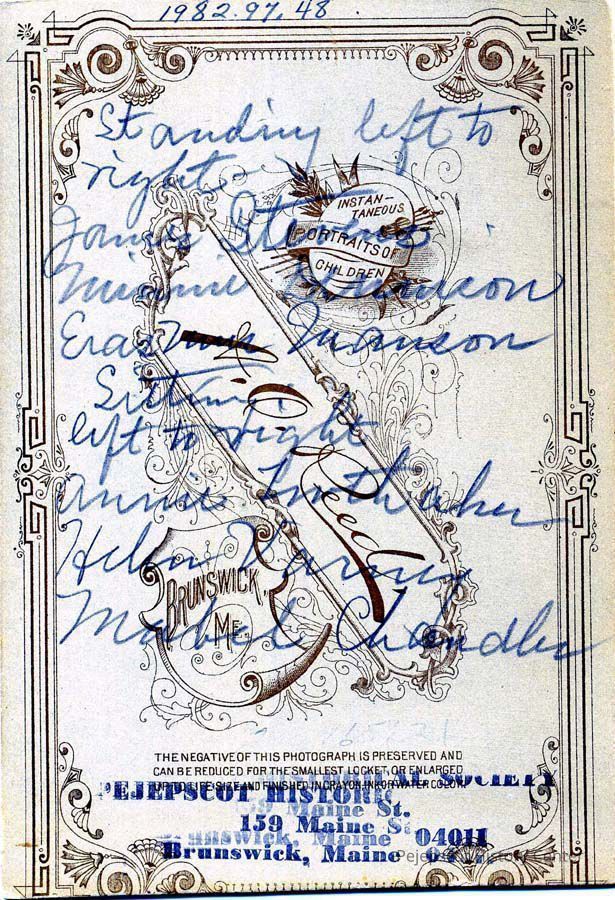 1982.97.48
Standing left to
right.
James Stevens
Minnie
Erastus Swanson
Sitting
left to right
annie
Helen Varney
Mabel Chandler
INSTAN-
TANEOUS
PORTRAITS OF
CHILDREN
A. O. Reed
BRUNSWICK,
ME.
THE NEGATIVE OF THIS PHOTOGRAPH IS PRESERVED AND
CAN BE REDUCED FOR THE SMALLEST LOCKET, OR ENLARGED
UP TO LIFE SIZE AND FINISHED IN CRAYON, INK OR WATER COLOR.
PEJEPSCOT HISTORICAL SOCIETY
159 Maine St.
Brunswick, Maine 04011